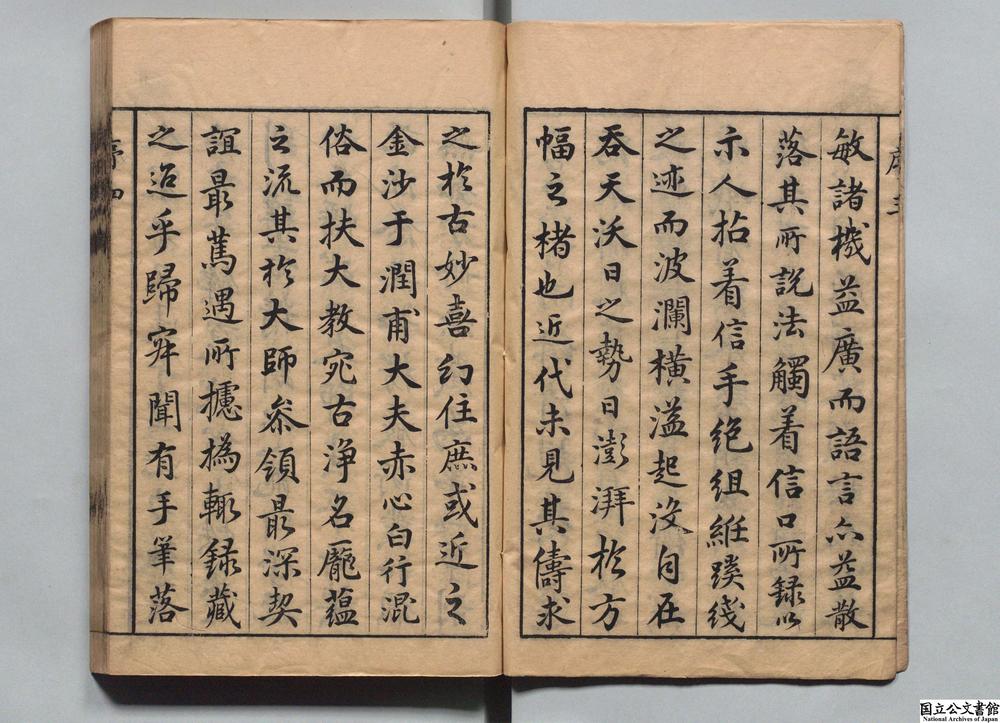 敏諸機益廣而語言亦益散
落其所説法觸着信口所録以
示人拈着信手絶組絍蹊綫
之迹而波瀾横溢起没自在
吞天沃日之勢日澎湃於方
幅之楮也近代未見其儔求
之於古妙喜幻住庶或近之
金沙于潤甫大夫赤心白行混
俗而扶大教宛古淨名龐藴
之流其於大師叅領最深契
誼最篤遇所攄為輙録藏
之迨乎歸寂聞有手筆落
序四
国立公文書館
National Archives of Japan